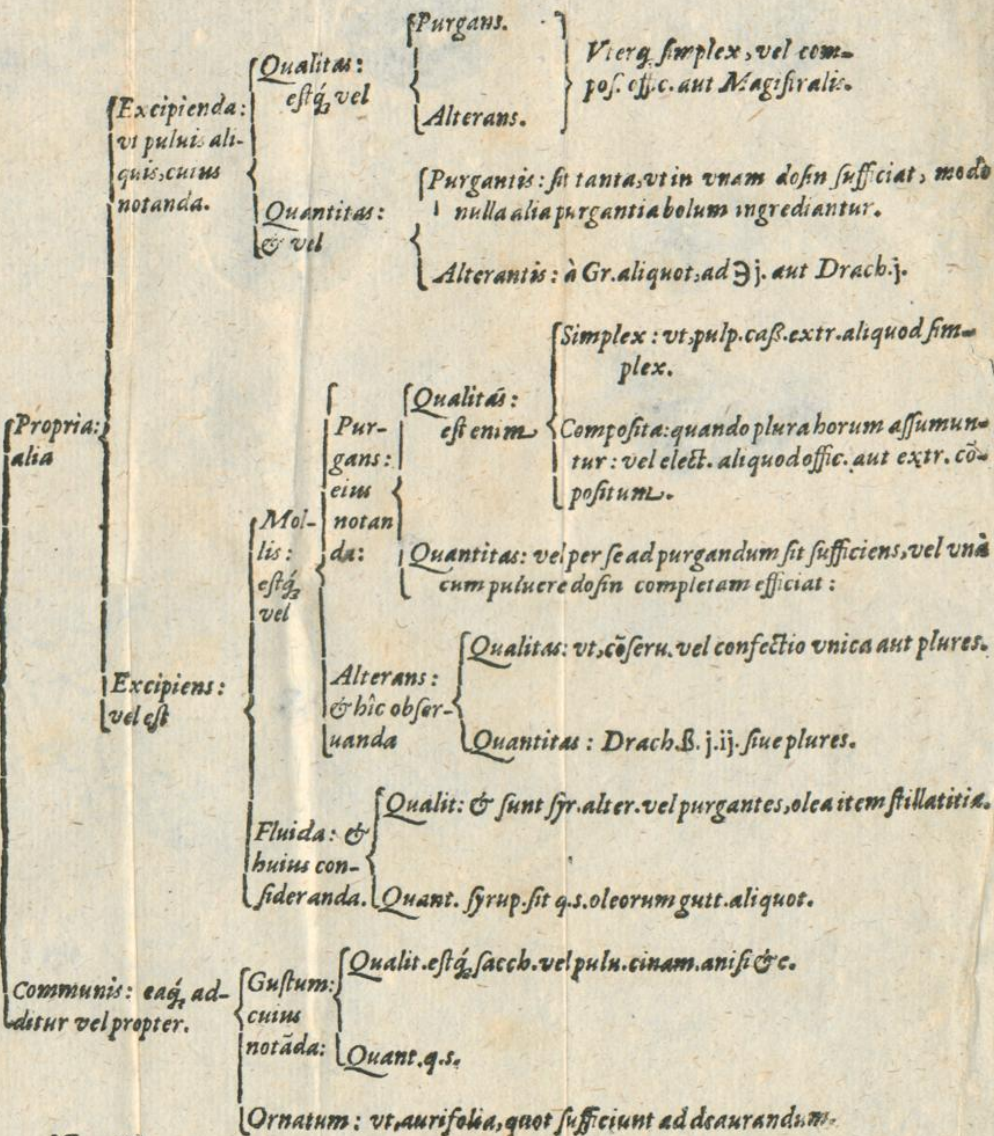 Purgans.
Vterq; simplex, vel com-
pos. offic. aut Magistralis.
Alterans.
Qualitas:
estq́; vel
Excipienda:
vt puluis ali-
quis, cuius
notanda.
Quantitas:
& vel
Purgantis: sit tanta, vt in vnam dosin sufficiat, modo
nulla alia purgantia bolum ingrediantur.
Alterantis: à Gr. aliquot, ad ℈ j. aut Drach. j.
Propria:
alia
Excipiens:
vel est
Mol-
lis:
estq́;
vel
Pur-
gans:
eius
notan
da:
Qualitas:
est enim
Simplex: vt, pulp. caß. extr. aliquod sim-
plex.
Composita: quando plura horum assumun-
tur: vel elect. aliquod offic. aut extr. cō-
positum.
Quantitas: vel per se ad purgandum sit sufficiens, vel vnà
cum puluere dosin completam efficiat:
Alterans:
& hîc obser-
uanda
Qualitas: vt, cōseru. vel confectio vnica aut plures.
Quantitas: Drach. ß. j. ij. siue plures.
Fluida: &
huius con-
sideranda.
Qualit: & sunt syr. alter. vel purgantes, olea item stillatitia.
Quant. syrup. sit q.s. oleorum gutt. aliquot.
Communis: eaq́; ad-
ditur vel propter.
Gustum:
cuius
notāda:
Qualit. estq́; sacch. vel pulu. cinam. anisi &c.
Quant. q.s.
Ornatum: vt, auri folia, quot sufficiunt ad deaurandum.